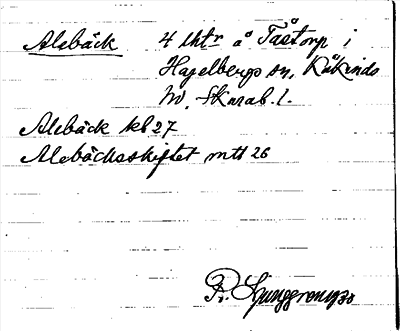 Alebäck 4 lhtr å Tåstorp i
Hagelbergs sn, Kåkinds
hd, Skarab. l.
Alebäck kb 27
Alebäcksskiftet mtl 26
R. Ljunggren 1930